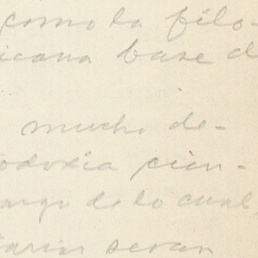 como la filo-
icana base d
mucho de-
odoxia cien-
argo de lo cual,
arin seran